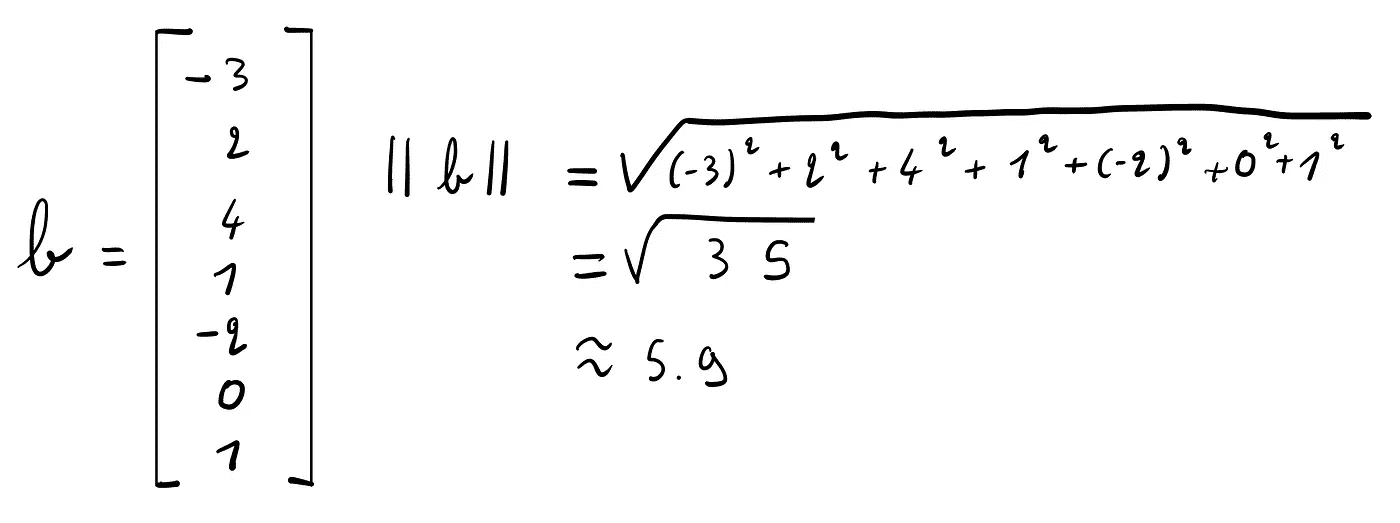 b = [ -3
2
4
1
-2
0
1 ]
||b|| = √((-3)² + 2² + 4² + 1² + (-2)² + 0² + 1²)
= √35
≈ 5.9